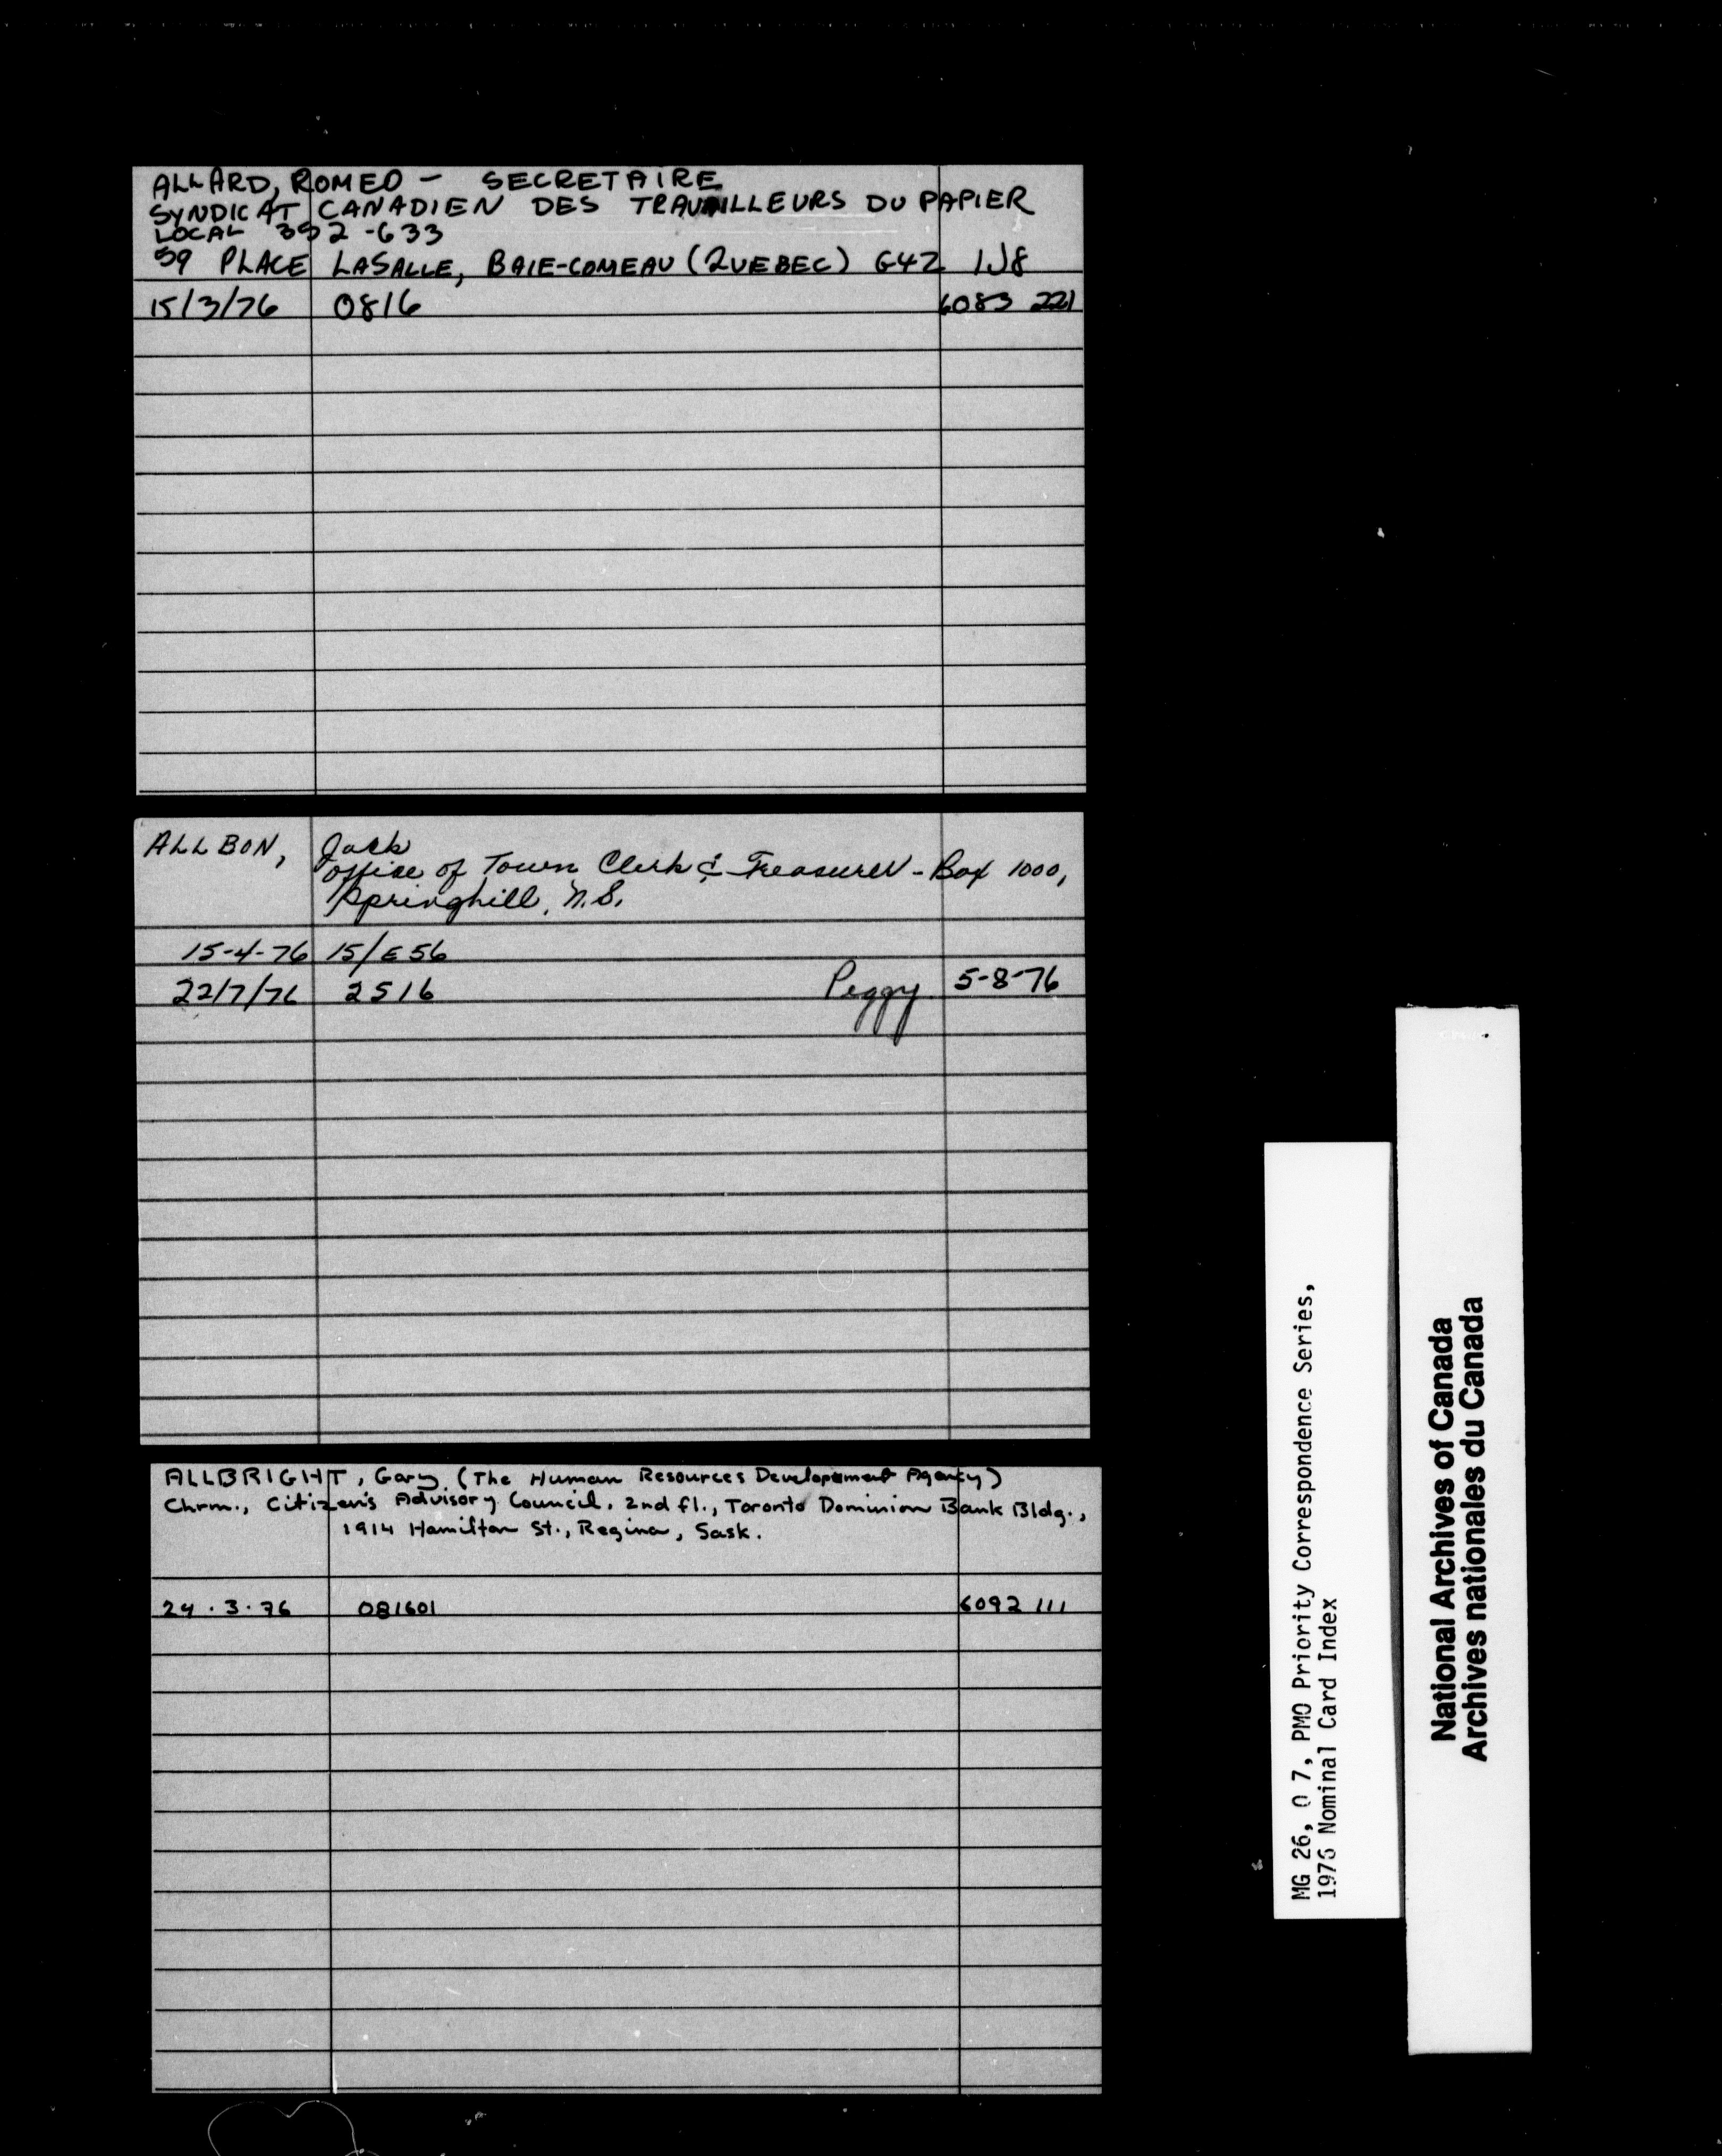 ALLARD, ROMEO - SECRETAIRE
SYNDICAT CANADIEN DES TRAVAILLEURS DU PAPIER
LOCAL 352-633
59 PLACE LASALLE, BAIE-COMEAU (QUEBEC) G4Z 1J8
15/3/76 0816 6083 221
ALLBON, Jack
Office of Town Clerk & Treasurer - Box 1000,
Springhill, N.S.
15-4-76 15/E56
22/7/76 2516 Peggy 5-8-76
ALLBRIGHT, Gary (The Human Resources Developement Agency)
Chrm., Citizen's Advisory Council, 2nd fl., Toronto Dominion Bank Bldg.,
1914 Hamilton St., Regina, Sask.
24.3.76 081601 6092 111
MG 26, O 7, PMO Priority Correspondence Series,
1976 Nominal Card Index
National Archives of Canada
Archives nationales du Canada